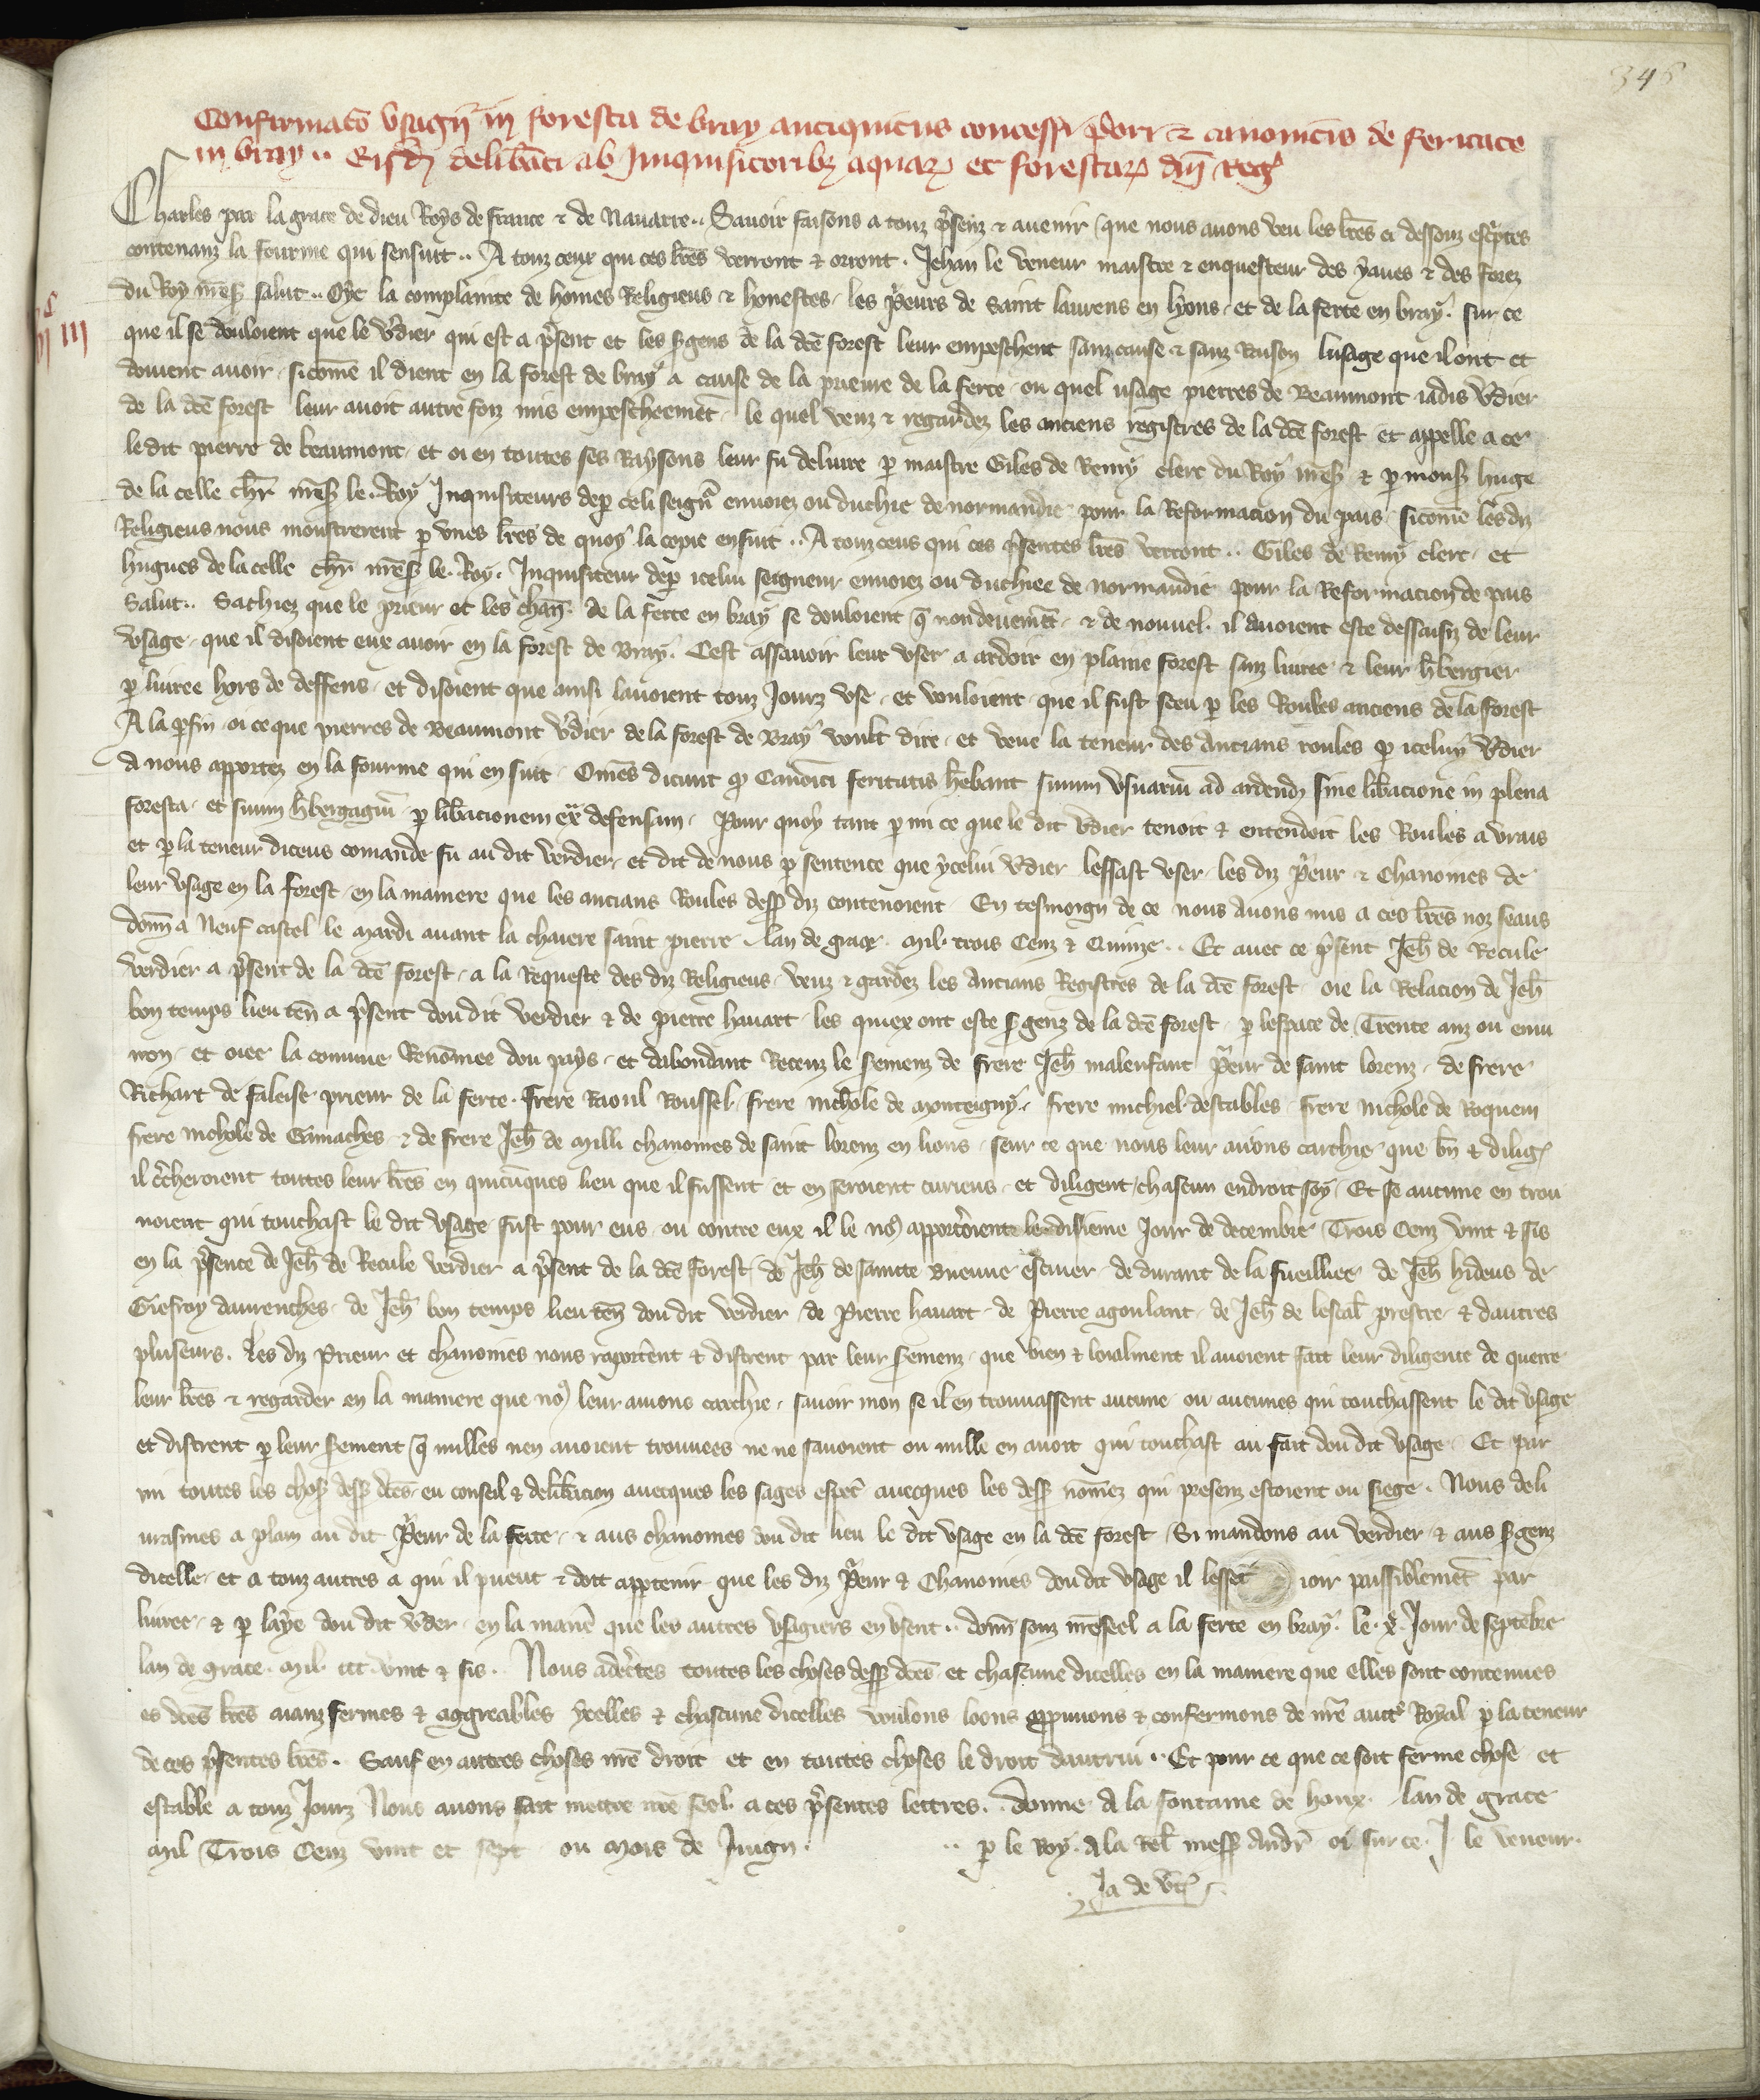 345
Confirmatō usagii in foresta de bray antiquitus concessi p̄ori ⁊ canonicis de feritate
in bray .. Eisdē deliƀati ab Inquisitoribꝫ aquaꝝ et forestaꝝ dn̄i Reg̕
Charles par la grace de dieu Roys de france ⁊ de Nauarre .. Sauoir faisons a touz p̄senz ⁊ auenir que nous auons veu les lr̄es ci dessouz escriptes
contenanz la fourme qui sensuit .. A touz ceux qui ces lr̄es verront ⁊ orront . Jehan le veneur maistre ⁊ enquesteur des yaues ⁊ des forez
du Roy nr̄eS̄ salut .. Oye la complainte de homes Religieus ⁊ honestes les p̄eurs de saint laurens en lyons et de la ferte en bray . sur ce
que il se douloient que le v̄dier qui est a p̄sent et les s̄gens de la dc̄e forest leur empeschent sanz cause ⁊ sanz Raison lusage que il ont et
doiuent auoir sicome il dient en la forest de bray a cause de la prieure de la ferte ou quel usage pierres de Beaumont iadis v̄dier
de la dc̄e forest leur auoit autre foiz mis empescheemēt le quel veuz ⁊ regardez les anciens registres de la dc̄e forest et appelle a ce
le dit pierre de beaumont et oi en toutes ses Raysons leur fu deliure ꝑ maistre Giles de Remy clerc du Roy nr̄eS̄ ⁊ ꝑ monss̄ huge
de la celle chr̄ nr̄eS̄ le Roy Inquisiteurs deꝑ celi seign̄r enuoiez ou duchie de normandie pour la Reformacion du pais sicome les diz
Religieus nous monstrerent ꝑ vnes lr̄es de quoy la copie ensuit .. A touz ceus qui ces p̄sentes lr̄es verront .. Giles de Remy clerc et
hugues de la celle chr̄ nr̄eS̄ le Roy . Inquisiteur deꝑ icelui seigneur enuoiez ou duchiee de normandie pour la Reformacion de pais
Salut .. Sachiez que le prieur et les chan̄ . de la ferte en bray se douloient q̄ non deuemēt ⁊ de nouuel il auoient este dessaisiz de leur
vsage que il disoient eux auoir en la forest de Bray . Cest assauoir leur vser a ardoir en plaine forest sanz liuree ⁊ leur h̄bergier
ꝑ liuree hors de deffens et disoient que ainsi lauoient touz Jourz vse et vouloient que il fust sceu ꝑ les Roules anciens de la forest
A la ꝑfin oi ce que pierres de Beaumont v̄dier de la forest de Bray voult dire et veue la teneur des Ancians roules ꝑ iceluy v̄dier
a nous apportez en la fourme qui ensuit . Om̄es dicunt q̄ Canōici feritatis h̄ebant suum vsuariū ad ardendꝫ sine liƀacione in plena
foresta et suum h̄bergagiū ꝑ liƀacionem ext̄ defensum . Pour quoy tant ꝑ mi ce que le dit v̄dier tenoit ⁊ entendoit les Roules a vrais
et ꝑ la teneur diceus comande fu au dit verdier et dit de nous ꝑ sentence que ycelui v̄dier lessast vser les diz p̄eur ⁊ Chanoines de
leur vsage en la forest en la maniere que les ancians Roules dess̄ diz contenoient En tesmoign de ce nous auons mis a ces lr̄es noz seaus
donn̄ a Neuf castel le mardi auant la chaiere saint pierre lan de grace mil trois Cenz ⁊ Quinze .. Et auec ce p̄sent Jeh̄ de Recule
verdier a p̄sent de la dc̄e forest a la Requeste des diz Religieus veuz ⁊ gardez les Ancians Registres de la dc̄e forest oie la Relacion de Jeh̄
bon temps lieu ten̄ a p̄sent dou dit verdier ⁊ de pierre hauart les quiex ont este s̄genz de la dc̄e forest ꝑ lespace de Trente anz ou enui
ron et oiee la comune Renōmee dou pays et dabondant Receuz le serment de frere Jeh̄ malenfant p̄eur de saint lorenz de frere
Richart de faleise prieur de la ferte . frere Raoul Roussel frere nichole de monteigny . frere michiel destables frere nichole de Roquem
frere nichole de Gamaches ⁊ de frere Jeh̄ de milli chanoines de saint lorenz en lions seur ce que nous leur auions carchie que bn̄ ⁊ diliḡ
il c̄cheroient toutes leur lr̄es en quicūques lieu que il fussent et en seroient curieus et diligent chascun endroit soy Et se aucune en trou
uoient qui touchast le dit vsage fust pour eus ou contre eux il le noꝰ apportoient le disieme Jour de decembre Trois Cenz vint ⁊ sis
en la p̄sence de Jeh̄ de Recule verdier a p̄sent de la dc̄e forest de Jeh̄ de saincte buenne escuier de durant de la fueilliee de Jeh̄ hideus de
Giefroy daurenches de Jeh̄ bon temps lieu ten̄ dou dit verdier de Pierre hauart de Pierre agoulant de Jeh̄ de lescal̄ prestre ⁊ dautres
pluseurs . Les diz Prieur et chanoines nous raportēnt ⁊ distrent par leur serment que bien ⁊ loialment il auoient fait leur diligence de querre
leur lr̄es ⁊ regarder en la maniere que noꝰ leur auions carchie sauoir mon se il en trouuassent aucune ou aucunes qui touchassent le dit vsage
et distrent ꝑ leur s̄ement q̄ nulles nen auoient trouuees ne ne sauoient ou nulle en auoit qui touchast au fait dou dit vsage Et par
mi toutes les choses dess̄ dc̄es eu conseil ⁊ deliƀacion auecques les sages espec̄ auecques les dess̄ nōmez qui presenz estoient ou siege . Nous deli
urasmes a plain au dit p̄eur de la ferte ⁊ aus chanoines dou dit lieu le dit vsage en la dc̄e forest Si mandons au verdier ⁊ aus s̄genz
dicelle et a touz autres a qui il puent ⁊ doit appr̄tenir que les diz p̄eur ⁊ Chanoines dou dit vsage il lessēt ioir paissiblemēt par
liuree ⁊ ꝑ laye dou dit v̄der en la maniē que les autres vsagiers en vsent .. donn̄ souz nr̄e seel a la ferte en bray . le . x̄ . Jour de septēbre
lan de grace . mil . ccc . vint ⁊ sis .. Nous adec̄tes toutes les choses dess̄ dc̄es et chascune dicelles en la maniere que elles sont contenues
es dc̄es lr̄es aianz fermes ⁊ aggreables ycelles ⁊ chascune dicelles voulons loons appruuons ⁊ confermons de nr̄e auct̄ Royal ꝑ la teneur
de ces p̄sentes lr̄es . Sauf en autres choses nr̄e droit et en toutes choses le droit dautrui .. Et pour ce que ce soit ferme chose et
estable a touz Jourz Nous auons fait mettre nr̄e seel a ces p̄sentes lettres .. Donne A la fontaine de houx . lan de grace
mil Trois Cenz vint et sept ou mois de Juign . .. ꝑ le Roy . A la Rel̄ mess̄ Andr̄ oi sur ce . J . le veneur .
Ja de v̄t̄